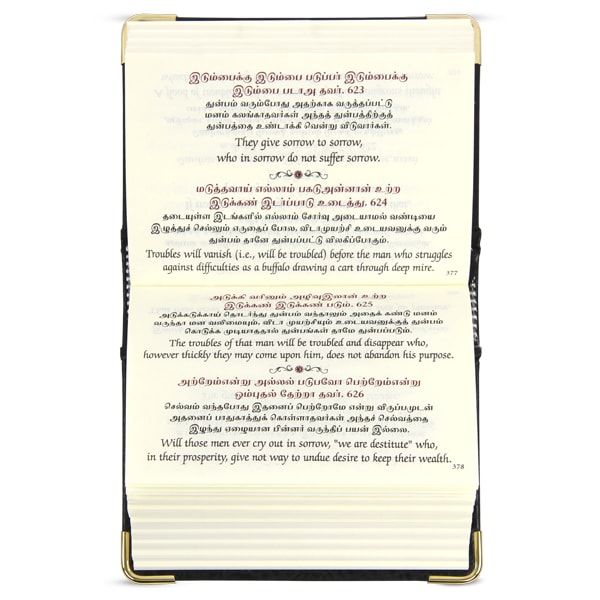 இடும்பைக்கு இடும்பை படுப்பர் இடும்பைக்கு
இடும்பை படாஅ தவர். 623
துன்பம் வரும்போது அதற்காக வருத்தப்பட்டு
மனம் கலங்காதவர்கள் அந்தத் துன்பத்திற்குத்
துன்பத்தை உண்டாக்கி வென்று விடுவார்கள்.
They give sorrow to sorrow,
who in sorrow do not suffer sorrow.
மடுத்தவாய் எல்லாம் பகடுஅன்னான் உற்ற
இடுக்கண் இடர்ப்பாடு உடைத்து. 624
தடையுள்ள இடங்களில் எல்லாம் சோர்வு அடையாமல் வண்டியை
இழுத்துச் செல்லும் எருதைப் போல, விடாமுயற்சி உடையவனுக்கு வரும்
துன்பம் தானே துன்பப்பட்டு விலகிப்போகும்.
Troubles will vanish (i.e., will be troubled) before the man who struggles
against difficulties as a buffalo drawing a cart through deep mire.
377
அடுக்கி வரினும் அழிவுஇலான் உற்ற
இடுக்கண் இடுக்கண் படும். 625
அடுக்கடுக்காய் தொடர்ந்து துன்பம் வந்தாலும் அதைக் கண்டு மனம்
வருந்தா மன வலிமையும், விடா முயற்சியும் உடையவனுக்குத் துன்பம்
கொடுக்க முடியாததால் துன்பங்கள் தாமே துன்பப்படும்.
The troubles of that man will be troubled and disappear who,
however thickly they may come upon him, does not abandon his purpose.
அற்றேம்என்று அல்லல் படுபவோ பெற்றேம்என்று
ஓம்புதல் தேற்றா தவர். 626
செல்வம் வந்தபோது இதனைப் பெற்றோமே என்று விருப்பமுடன்
அதனைப் பாதுகாத்துக் கொள்ளாதவர்கள் அந்தச் செல்வத்தை
இழந்து ஏழையான பின்னர் வருந்திப் பயன் இல்லை.
Will those men ever cry out in sorrow, "we are destitute" who,
in their prosperity, give not way to undue desire to keep their wealth.
378